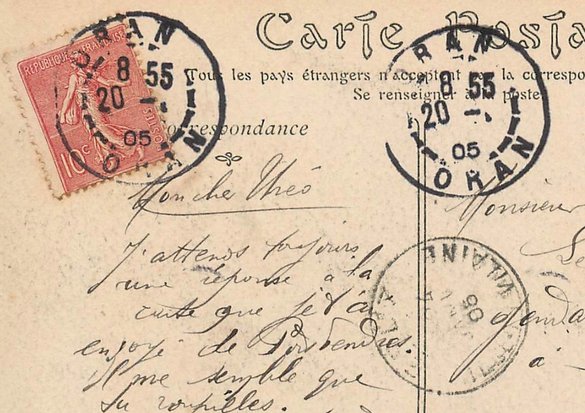 Carte Posta
REPUBLIQUE FRANÇAISE
POSTES
10c
ORAN
8 55
20 -1
05
ORAN
Tous les pays étrangers n'acceptent la correspo
Se renseigner poste
ORAN
8 55
20 -1
05
ORAN
Correspondance
Mon cher Théo
J'attends toujours
une réponse à la
carte que je t'ai
envoyé de Portvendres.
Il me semble que
tu roupilles.
Monsieur
Le
genda
à
VILAINE
05